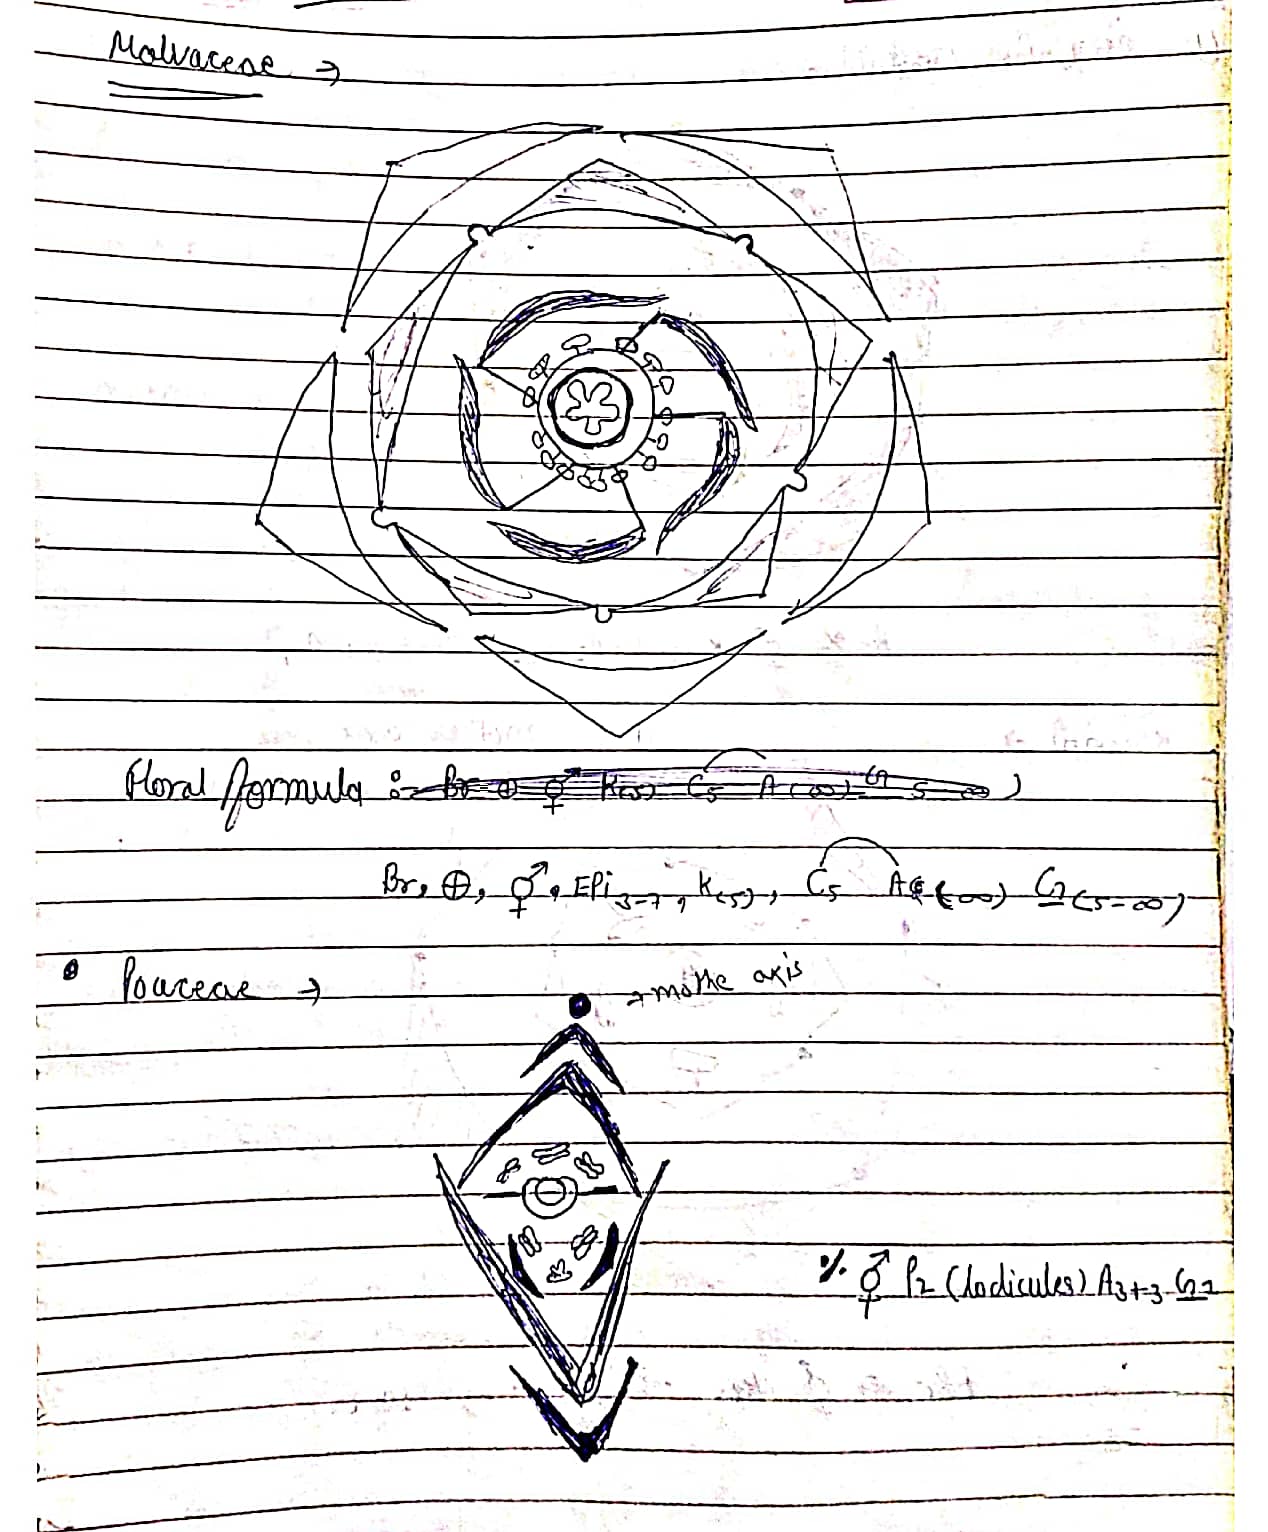 Malvaceae →
Floral formula :- Br ⊕ ⚥ K(5) C5 A(∞) G 5-∞)
Br, ⊕, ⚥, EPi 3-7, K(5), C5 A(∞) G(5-∞)
Poaceae →
→ mothe axis
%. ⚥ P2 (lodicules) A3+3 G2